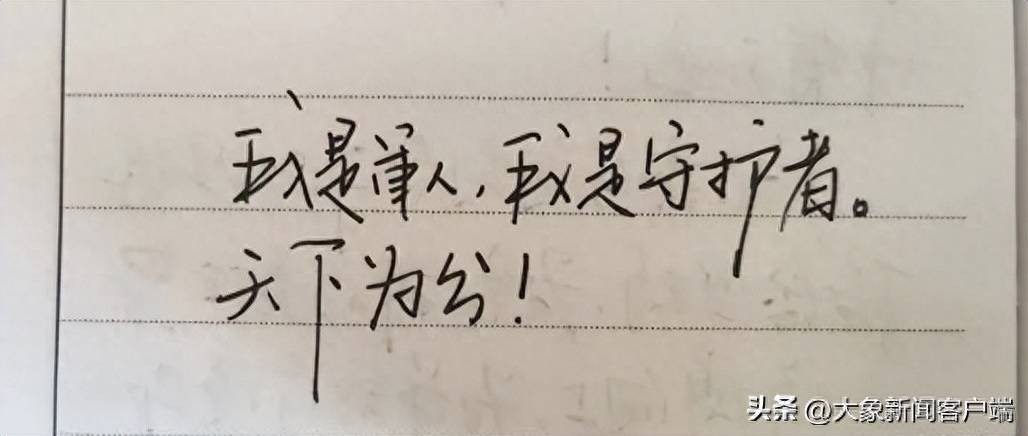 我是军人,我是守护者。
天下为公!
头条 @大象新闻客户端